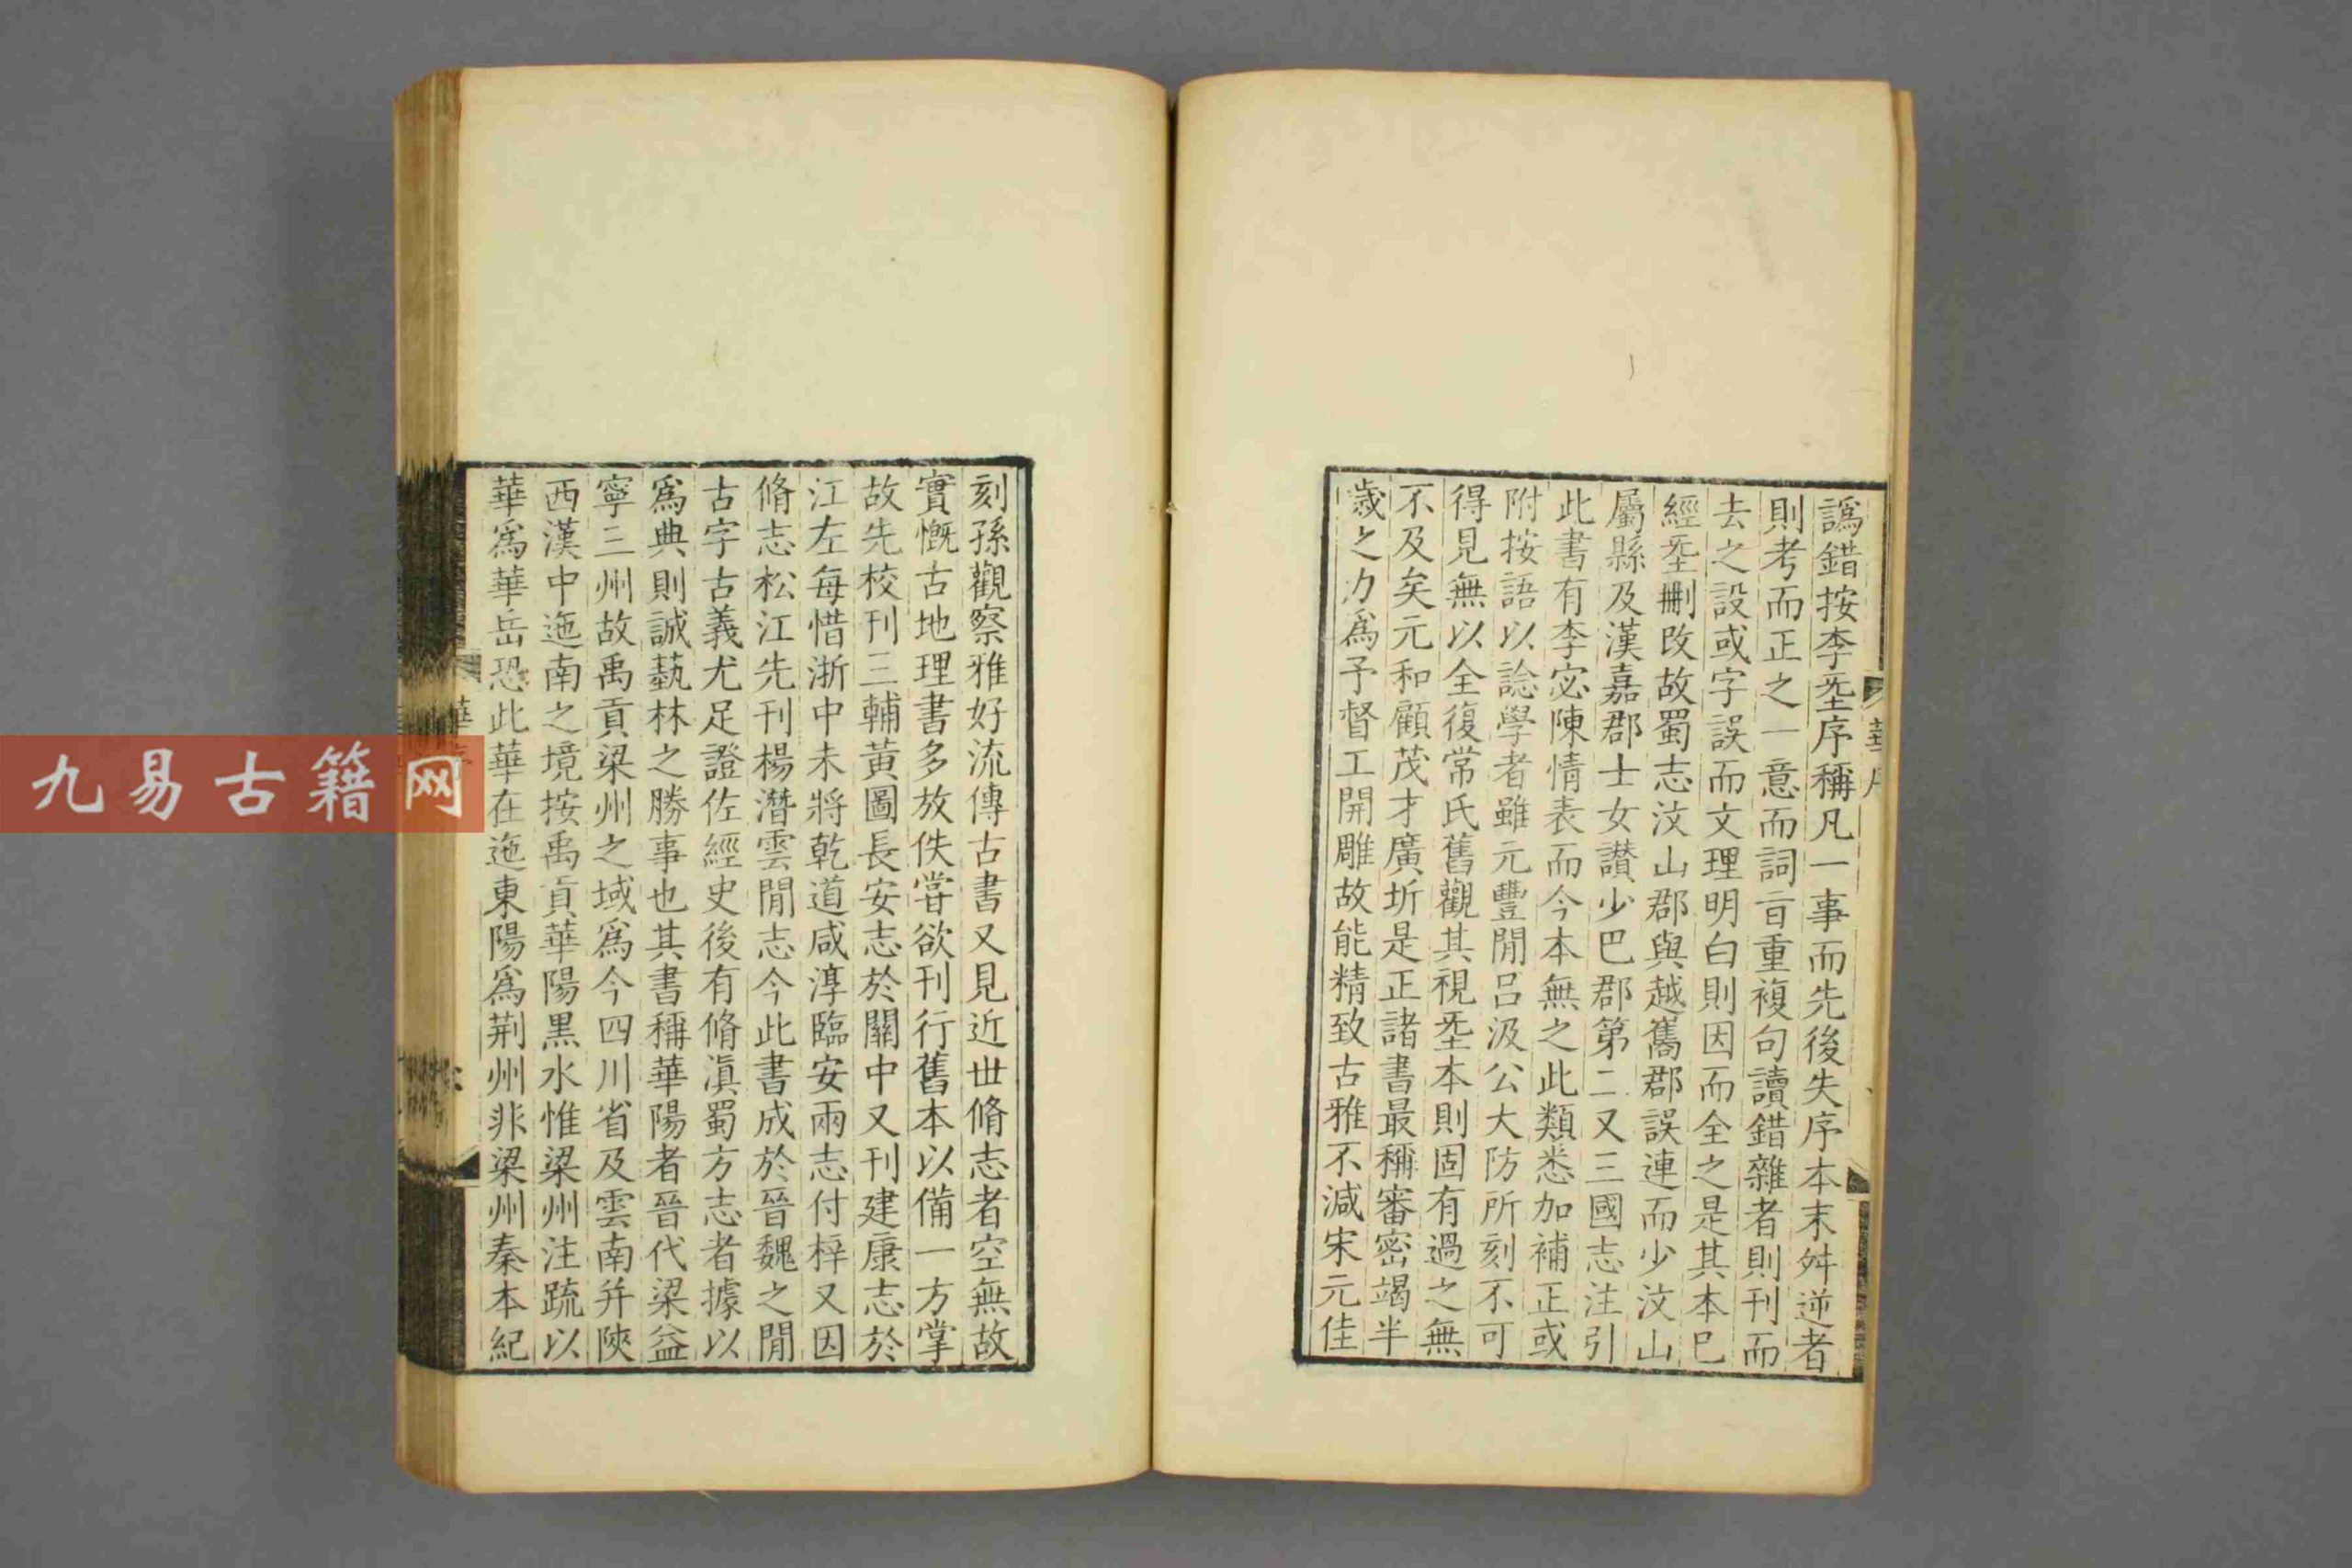 譌錯按李𡊮序稱凡一事而先後失序本末舛逆者
則考而正之一意而詞旨重複句讀錯雜者則刊而
去之設或字誤而文理明白則因而全之是其本已
經𡊮刪改故蜀志汶山郡與越嶲郡誤連而少汶山
屬縣及漢嘉郡士女讃少巴郡第二又三國志注引
此書有李宓陳情表而今本無之此類悉加補正或
附按語以諗學者雖元豐閒呂汲公大防所刻不可
得見無以全復常氏舊觀其視𡊮本則固有過之無
不及矣元和顧茂才廣圻是正諸書最稱審密竭半
歲之力爲予督工開雕故能精致古雅不減宋元佳
刻孫觀察雅好流傳古書又見近世脩志者空無故
實慨古地理書多放佚嘗欲刊行舊本以備一方掌
故先校刊三輔黃圖長安志於關中又刊建康志於
江左每惜浙中未將乾道咸淳臨安兩志付梓又因
脩志松江先刊楊潛雲閒志今此書成於晉魏之閒
古字古義尤足證佐經史後有脩滇蜀方志者據以
爲典則誠藝林之勝事也其書稱華陽者晉代梁益
寧三州故禹貢梁州之域爲今四川省及雲南并陝
西漢中迤南之境按禹貢華陽黑水惟梁州注疏以
華爲華岳恐此華在迤東陽爲荆州非梁州秦本紀
九易古籍网